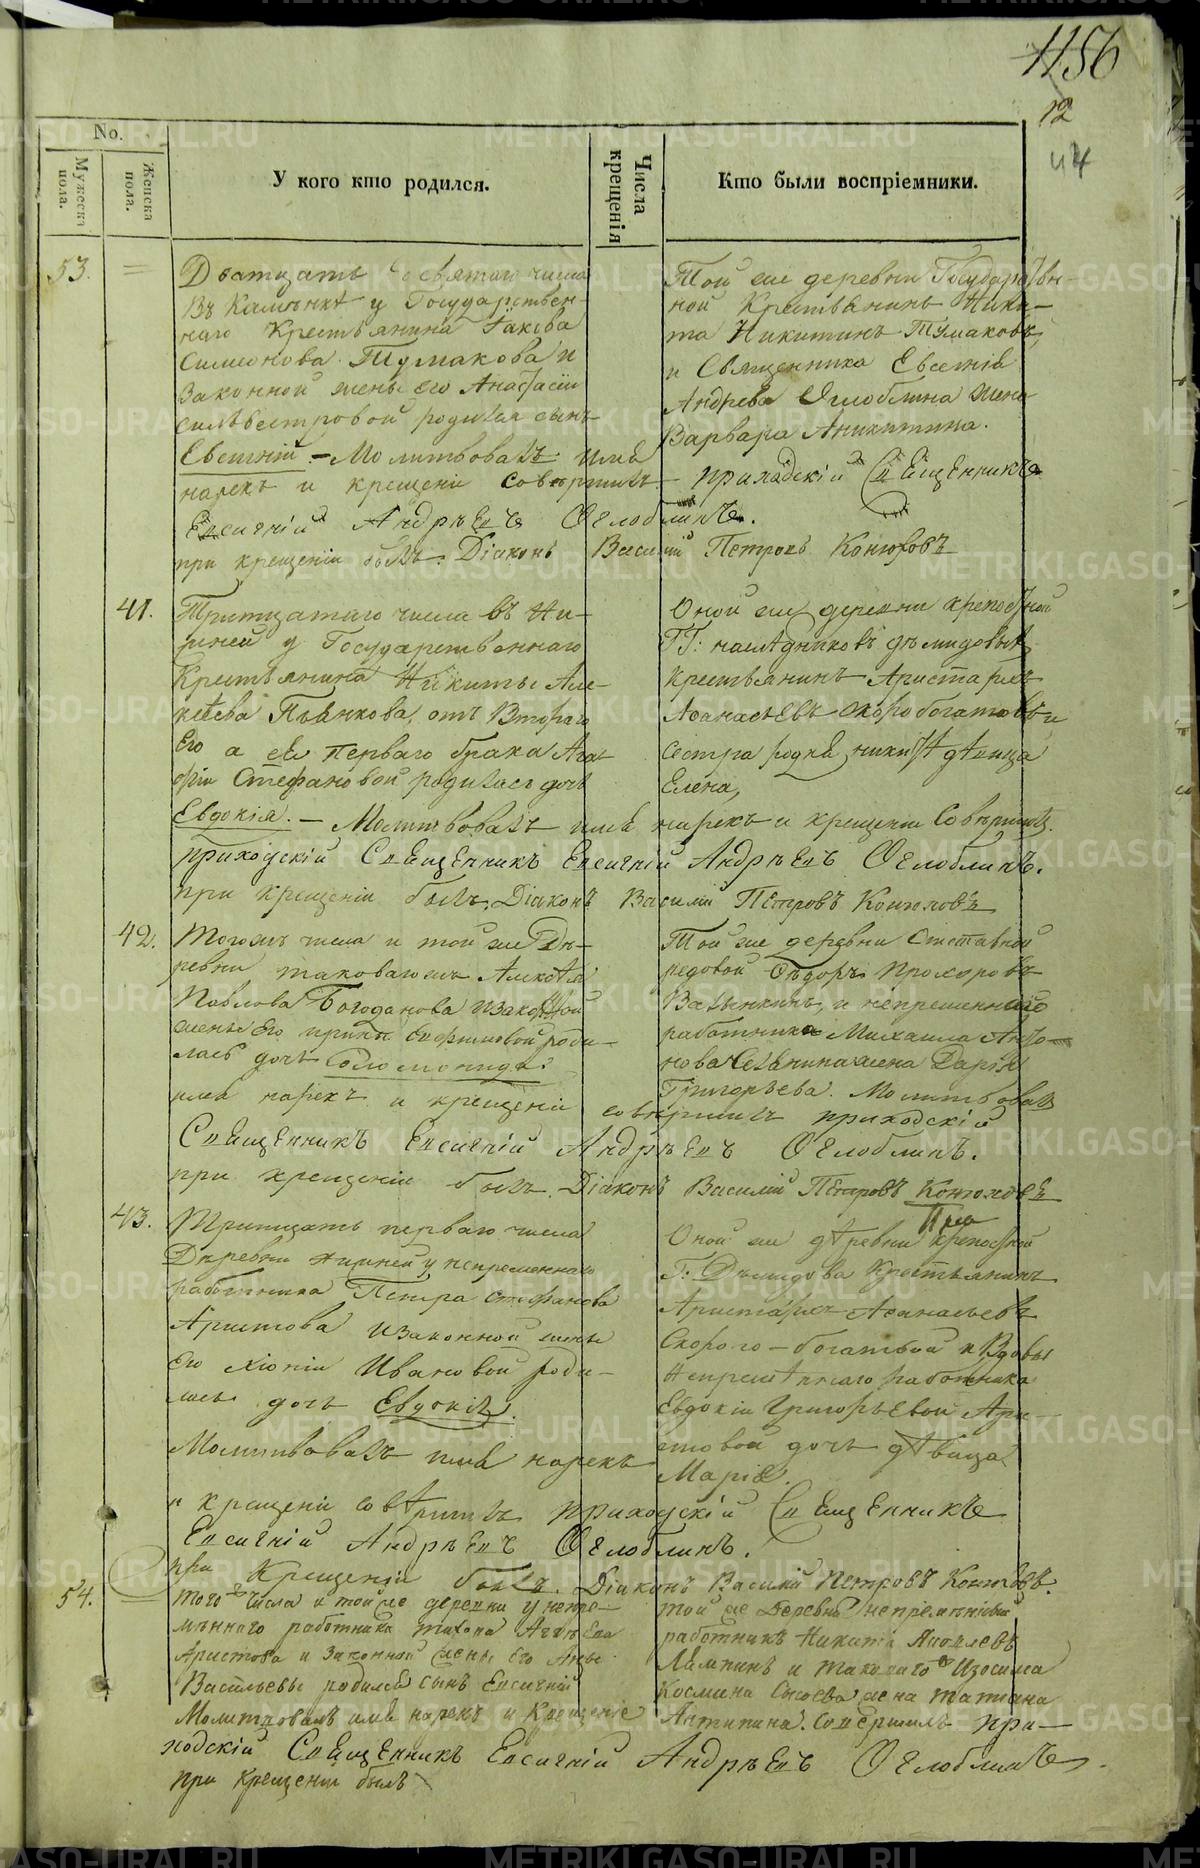 1156
12
44
No.
Мужеска пола.
Женска пола.
У кого кто родился.
Числа крещенія
Кто были воспріемники.
53.
Двадцать девятаго числа
Въ Камынкѣ у Государствен-
наго Крестьянина Іакова
Симеонова Тумакова и
Законной жены его Анастасіи
Сильвестровой родился сынъ
Евсигній. – Молитвовалъ имя
нарекъ и крещеніе совершилъ приходскій Священникъ
Евсигній Андрѣевъ Оглоблинъ.
при крещеніи былъ Діаконъ Василій Петровъ Конюховъ
Той же деревни Государствен-
ной Крестьянинъ Ники-
та Никитинъ Тумаковъ,
и Священника Евсегнія
Андреева Оглоблина жена
Варвара Аникитина.
41.
Тритцатаго числа въ Ни-
жней у Государственнаго
Крестьянина Никиты Але-
ксѣева Пьянкова, отъ Втораго
Его а ея перваго брака Ага-
фіи Стефановой родилась дочь
Евдокія. – Молитвовалъ имя нарекъ и крещеніе Совершилъ
приходскій Священникъ Евсигній Андрѣевъ Оглоблинъ.
при крещеніи былъ Діаконъ Василій Петровъ Конюховъ
Оной же деревни крепостной
ГГ: наслѣдниковъ дѣмидовыхъ
Крестьянинъ Аристархъ
Афанасьевъ Скоробогатовъ и
сестра родная Никиты дѣвица
Елена,
42.
Тогожъ числа и той же Де-
ревни таковагожъ Алексѣя
Павлова Богоданова и законной
жены Его Ефимовой роди-
лась дочь Соломонида.
имя нарекъ и крещеніе совершилъ приходскій
Священникъ Евсигній Андрѣевъ Оглоблинъ.
при крещеніи былъ Діаконъ Василій Петровъ Конюховъ
Той же деревни Отставной
редовой Ѳедоръ Прохоровъ
и непременнаго
работника Михаила Анто-
нова жена Дарія
Григорьева. Молитвовалъ
43.
Тритцать перваго числа
Деревни Нижней у непременнаго
работника Петра Стефанова
Аристова и законной жены
Его Хіоніи Ивановой роди-
лась дочь Евдокія.
Молитвовалъ имя нарекъ
и крещеніе совѣршилъ приходскій Священникъ
Евсигній Андрѣевъ Оглоблинъ.
при Крещеніи былъ Діаконъ Василій Петровъ Конюховъ.
Оной же дѣревни крепостной
Г: Дѣмидова Крестьянинъ
Аристархъ Афанасьевъ
Скоро-богатой и Вдовы
Непремѣннаго работника
Евдокіи Григорьевой Ари-
стовой дочь дѣвица
Марія.
54.
того числа и той же деревни у непре-
мѣннаго работника Аггѣева
Аристова и Законной жены Его Анны
Васильевы родился сынъ Евсигній
Молитвовалъ имя нарекъ и Крещеніе Совершилъ при-
ходскій Священникъ Евсигній Андрѣевъ Оглоблинъ.
при крещеніи былъ
той же Деревни непремѣнный
работникъ Никита Яковлевъ
Ляминъ и таковаго Изосима
Косьмина Сысоева жена Татіана
Антипина.